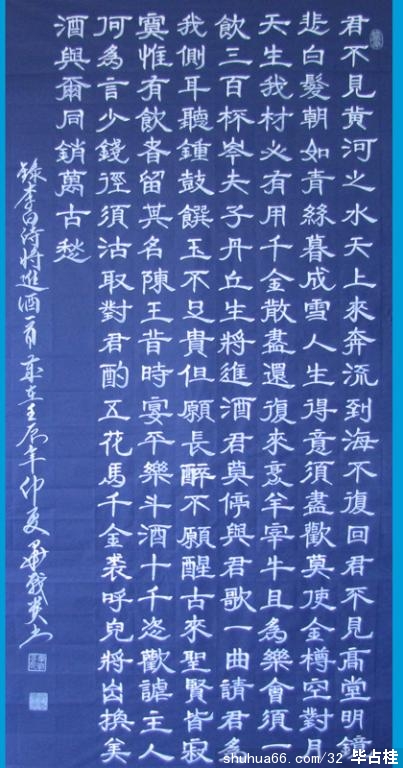 君不見黃河之水天上來奔流到海不復回君不見高堂明鏡
悲白髮朝如青絲暮成雪人生得意須盡歡莫使金樽空對月
天生我材必有用千金散盡還復來烹羊宰牛且為樂會須一
飲三百杯岑夫子丹丘生將進酒君莫停與君歌一曲請君為
我側耳聽鍾鼓饌玉不足貴但願長醉不願醒古來聖賢皆寂
寞惟有飲者留其名陳王昔時宴平樂斗酒十千恣歡謔主人
何為言少錢徑須沽取對君酌五花馬千金裘呼兒將出換美
酒與爾同銷萬古愁
錄李白诗將進酒一首歲在壬辰年仲夏畢
shuhua66.com/32 毕占桂